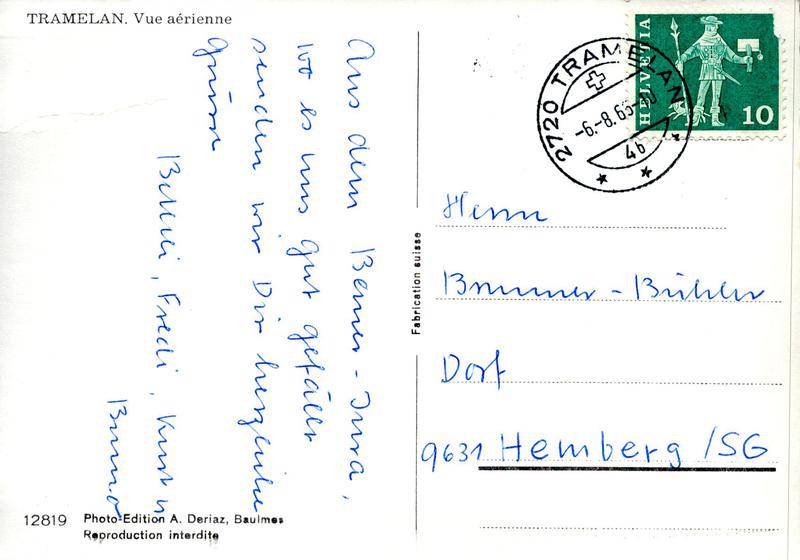 TRAMELAN. Vue aérienne
Aus dem Berner-Jura,
wo es uns gut gefällt
senden wir Dir herzliche
Grüsse
Fredi, Kurt u
Bruno
12819 Photo-Edition A. Deriaz, Baulmes
Reproduction interdite
Fabrication suisse
2720 TRAMELAN
-6.-8.65-10
4b
HELVETIA
10
Herrn
Brunner-Bühler
Dorf
9631 Hemberg/SG